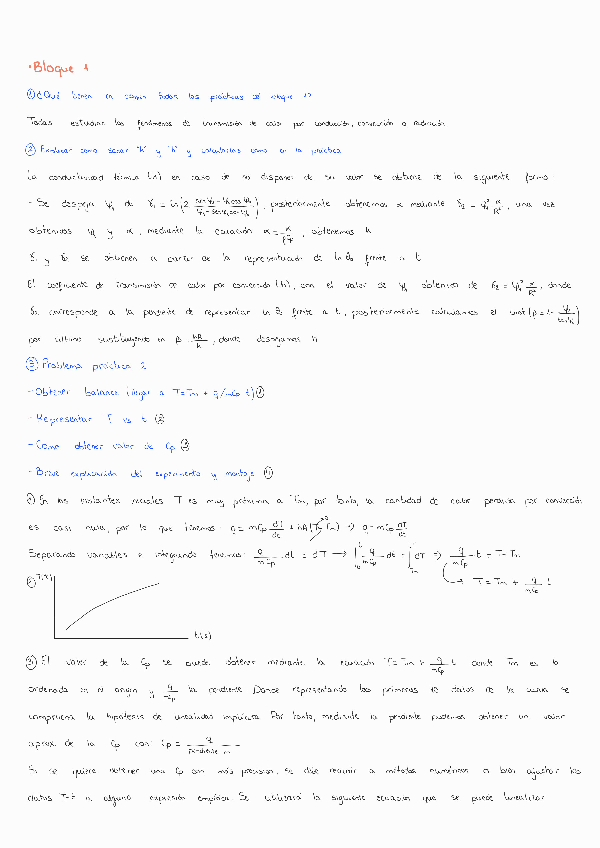 · Bloque 1
① ¿Qué tienen en común todas las prácticas del bloque 1?
Todas estudian los fenómenos de transmisión de calor por conducción, convección o radiación
② Explicar como sacar "h" y "k" y calcularlas como en la práctica
La conductividad térmica (k) en caso de no disponer de su valor se obtiene de la siguiente forma
- Se despeja ψ₁ de γ₁ = ln(2 (sen ψ₁ - ψ₁ cos ψ₁)/(ψ₁ - sen ψ₁ cos ψ₁)), posteriormente obtenemos α mediante γ₂ = ψ₁² α/R², una vez
obtenidos ψ₁ y α, mediante la ecuación α = k/(ρ Cp), obtenemos k
γ₁ y γ₂ se obtienen a partir de la representación de ln θ₀ frente a t
El coeficiente de transmisión de calor por convección (h), con el valor de ψ₁ obtenido de γ₂ = ψ₁² α/R², donde
γ₂ corresponde a la pendiente de representar ln θ₀ frente a t, posteriormente calculamos el Biot (β = 1 - ψ₁/tan ψ₁)
por último sustituyendo en β = hR/k, donde despejamos h
③ Problema práctica 2
- Obtener balance (llegar a T = Tm + q/mCp t) ①
- Representar T vs t ②
- Como obtener valor de Cp ③
- Breve explicación del experimento y montaje ④
① En los instantes iniciales T es muy próxima a Tm, por tanto, la cantidad de calor perdida por convección
es casi nula, por lo que tenemos: q = mCp dT/dt + hA(T - Tm) → q = mCp dT/dt
Separando variables e integrando tenemos: q/mCp · dt = dT → ∫ q/mCp · dt = ∫ dT ⇒ q/mCp · t = T - Tm
→ T = Tm + q/mCp · t
② T(K)
t(s)
③ El valor de la Cp se puede obtener mediante la ecuación T = Tm + q/mCp t donde Tm es la
ordenada en el origen y q/mCp la pendiente. Donde representando los primeros 10 datos de la curva se
comprueba la hipótesis de linealidad implícita. Por tanto, mediante la pendiente podemos obtener un valor
aprox. de la Cp con Cp = q/(pendiente · m)
Si se quiere obtener una Cp con más precisión, se debe recurrir a métodos numéricos o bien ajustar los
datos T-t a alguna expresión empírica. Se utilizará la siguiente ecuación que se puede linealizar